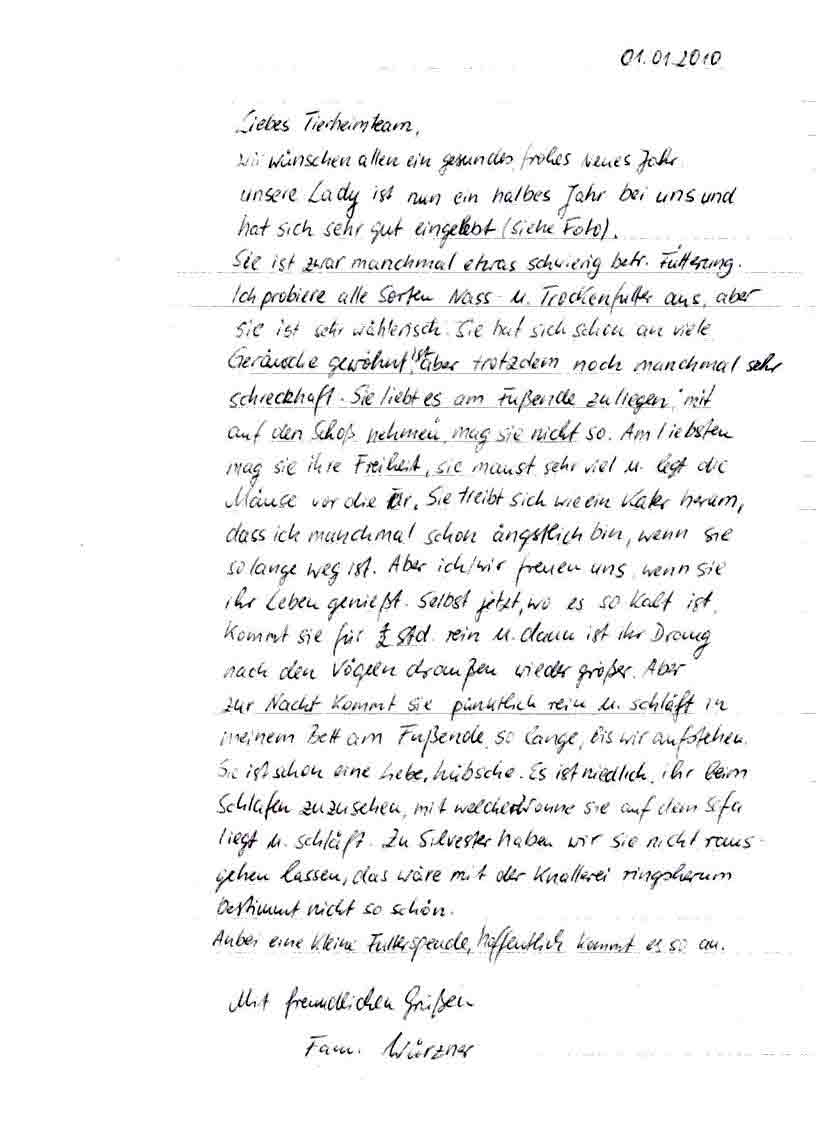 01.01.2010
Liebes Tierheimteam,
wir wünschen allen ein gesundes, frohes neues Jahr.
unsere Lady ist nun ein halbes Jahr bei uns und
hat sich sehr gut eingelebt (siehe Foto).
Sie ist zwar manchmal etwas schwierig betr. Fütterung.
Ich probiere alle Sorten Nass- u. Trockenfutter aus, aber
sie ist sehr wählerisch. Sie hat sich schon an viele
Geräusche gewöhnt, ist aber trotzdem noch manchmal sehr
schreckhaft. Sie liebt es am Fußende zu liegen, mit
auf den Schoß nehmen, mag sie nicht so. Am liebsten
mag sie ihre Freiheit, sie maust sehr viel u. legt die
Mäuse vor die Tür. Sie treibt sich wie ein Kater herum,
dass ich manchmal schon ängstlich bin, wenn sie
so lange weg ist. Aber ich/wir freuen uns, wenn sie
ihr Leben genießt. Selbst jetzt, wo es so kalt ist,
kommt sie für ½ Std. rein u. dann ist ihr Drang
nach den Vögeln draußen wieder größer. Aber
zur Nacht kommt sie pünktlich rein u. schläft in
meinem Bett am Fußende, so lange, bis wir aufstehen.
Sie ist schon eine Liebe, hübsche. Es ist niedlich, ihr beim
Schlafen zuzusehen, mit welcher Wonne sie auf dem Sofa
liegt u. schläft. Zu Silvester haben wir sie nicht raus-
gehen lassen, das wäre mit der Knallerei ringsherum
bestimmt nicht so schön.
Anbei eine kleine Futterspende, hoffentlich kommt es so an.
Mit freundlichen Grüßen
Fam. Würzner